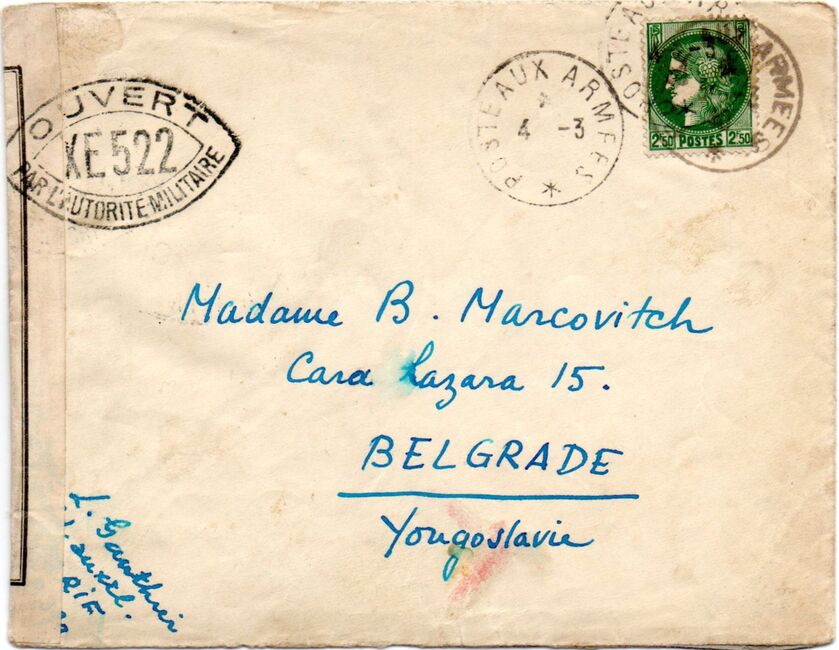 OUVERT
XE522
PAR L'AUTORITE MILITAIRE
POSTE AUX ARMEES *
4 -3
POSTE AUX ARMEES *
2F50 POSTES 2F50
Madame B. Marcovitch
Cara Lazara 15.
BELGRADE
Yougoslavie